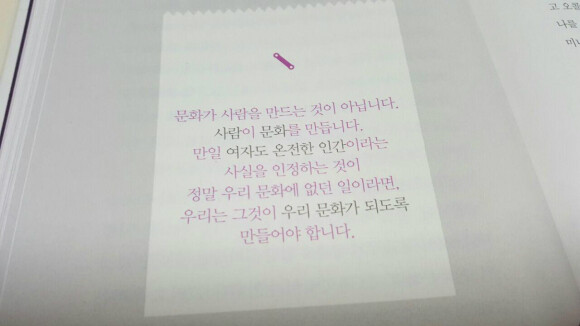 문화가 사람을 만드는 것이 아닙니다.
사람이 문화를 만듭니다.
만일 여자도 온전한 인간이라는
사실을 인정하는 것이
정말 우리 문화에 없던 일이라면,
우리는 그것이 우리 문화가 되도록
만들어야 합니다.
고
나를